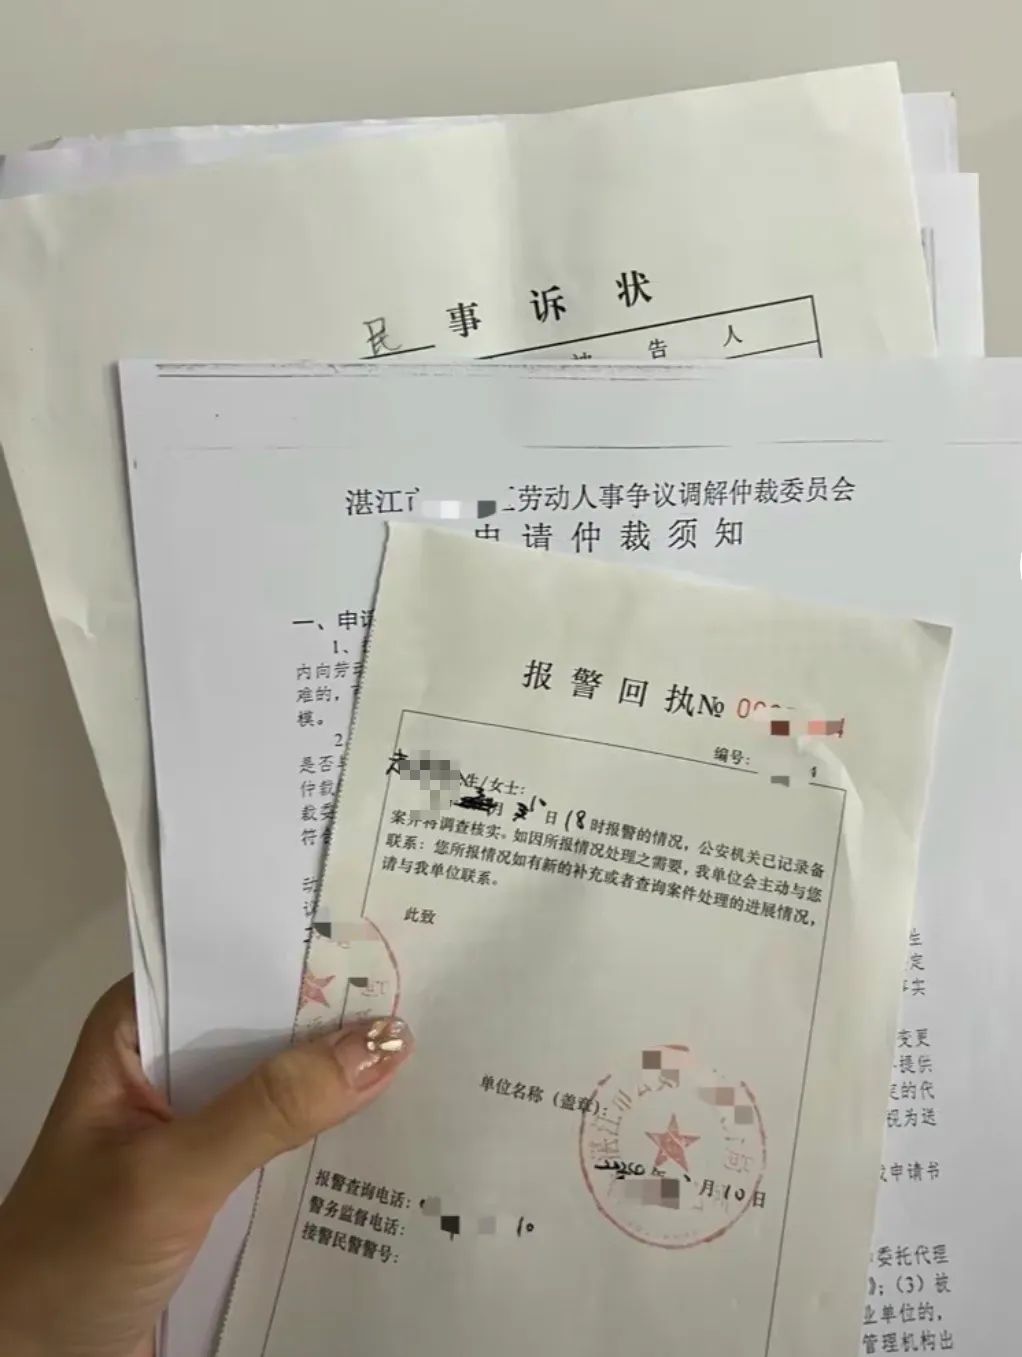 民事诉状
被告人
湛江市
劳动人事争议调解仲裁委员会
申请仲裁须知
一、申请
1、
内向劳动
难的，
模。
2
是否
仲裁
裁委
符合
报警回执№
编号：
生/女士：
月 日18时报警的情况，公安机关已记录备
案并将调查核实。如因所报情况处理之需要，我单位会主动与您
联系；您所报情况如有新的补充或者查询案件处理的进展情况，
请与我单位联系。
此致
单位名称（盖章）：
湛江市公
年 月10日
报警查询电话：
警务监督电话： 10
接警民警警号：
生
定
事实
变更
提供
定的代
视为送
申请书
委托代理
；（3）被
业单位的，
管理机构出